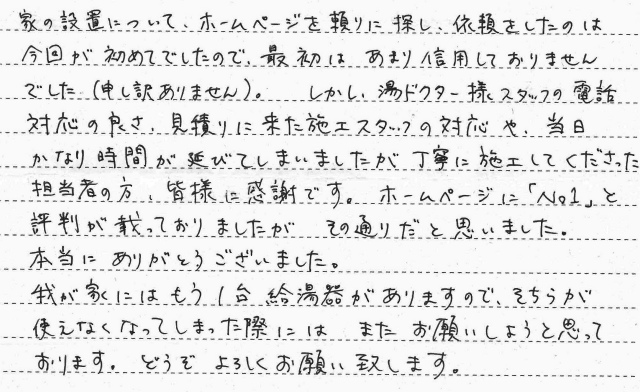 家の設置について、ホームページを頼りに探し、依頼をしたのは
今回が初めてでしたので、最初はあまり信用しておりません
でした(申し訳ありません)。 しかし、湯ドクター様スタッフの電話
対応の良さ、見積りに来た施工スタッフの対応や、当日
かなり時間が延びてしまいましたが丁寧に施工してくださった
担当者の方、皆様に感謝です。ホームページに「No1」と
評判が載っておりましたが その通りだと思いました。
本当にありがとうございました。
我が家にはもう1台給湯器がありますので、そちらが
使えなくなってしまった際には またお願いしようと思って
おります。どうぞよろしくお願い致します。